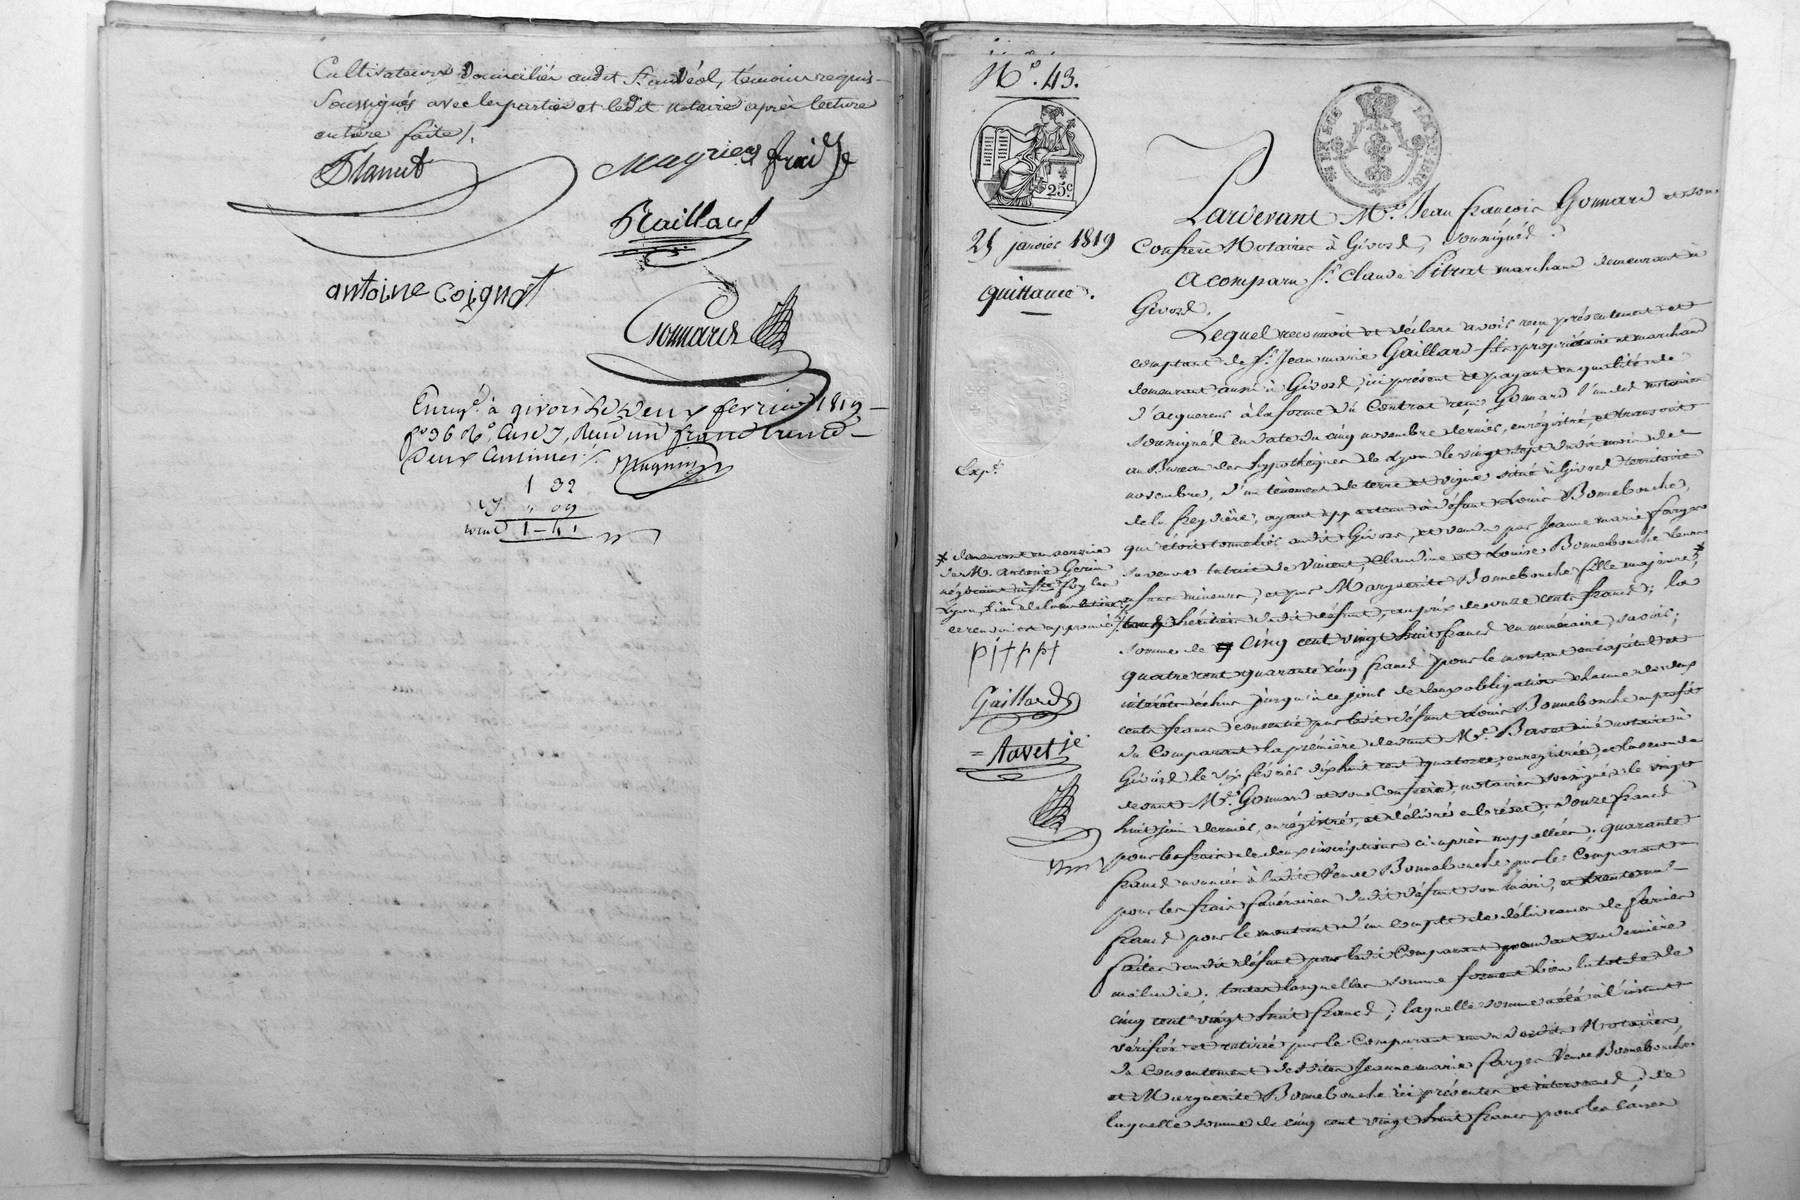 Cultivateurs domiciliés audit St andéol, témoins requis
soussignés avec les parties et ledit notaire après lecture
entière faite /.
fraisse
Gaillard
antoine Coignet
Gonnard
Enreg.é à givors le deux fevrier 1819
f.o 96 R.o Case 7, Reçu un franc trente
deux Centimes /.
1 32
1 - 41
N.o 43.
25.c
25 janvier 1819
quittance.
Exp.é
* demeurant en service
de M. Antoine Gerin
négociant
Lyon,
ce renvoi est approuvé /.
Gaillard
= Aavet je
Pardevant M.e Jean françois Gonnard et son
Confrère Notaires à Givors, soussignés.
A comparu S.r Claude Pitrat marchand demeurant à
Givors.
Lequel reconnoit et déclare avoir reçu présentement et
comptant de S.r Jean marie Gaillard fils propriétaire et marchand
demeurant aussi à Givors, ici présent et payant en qualité de
d'acquereur à la forme du Contrat reçu Gonnard l'un des notaires
soussignés en date du cinq novembre dernier, enrégistré, et transcrit
au Bureau des hypothèques de Lyon le vingt sept dudit mois de
novembre, d'un tènement de terre et vigne situé à Givors territoire
de la freydière, ayant appartenu à défunt Louis Bonnebouche,
qui étoit tonnelier audit Givors, et vendu par Jeanne marie farges
sa veuve tutrice de Vincent, Claudine et Louise Bonnebouche leurs
enfans mineurs, et par Marguerite Bonnebouche fille majeure, *
héritiers dudit défunt, au prix de onze cents francs; la
somme de cinq cent vingt huit francs en numéraire, savoir;
quatre cent quarante cinq francs pour le montant en capital et
intérêts échus jusqu'à ce jour de deux obligations chacune de deux
cents francs consentie par ledit défunt Louis Bonnebouche au profit
du Comparant la première devant M.e Bavet ainé notaire à
Givors le six février dix huit cent quatorze, enregistrée, et la seconde
devant M.e Gonnard et son Confrère, notaires soussignés le vingt
huit juin dernier, enrégistrée, et délivrée en brévet; douze francs
pour les frais de deux inscriptions ci-après rappellées; quarante
francs avancés à ladite Veuve Bonnebouche par le Comparant
pour les frais funéraires dudit défunt son mari, et trente un
francs pour le montant d'un compte de délivrances de farines
faites audit défunt par ledit Comparant pendant sa dernière
maladie; toutes lesquelles somme forment bien la totale de
cinq cent vingt huit francs; laquelle somme a été à l'instant
vérifiée et retirée par le Comparant au vu desdits Notaires,
du Consentement desdites Jeanne marie farges Veuve Bonnebouche
et Marguerite Bonnebouche ici présentes et intervenues; de
laquelle somme de cinq cent vingt huit francs pour les causes